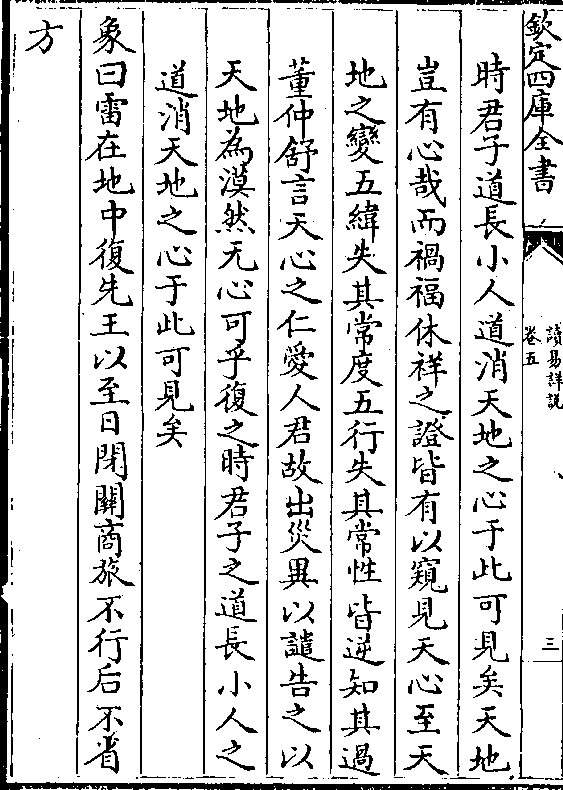 欽定四庫全書
讀易詳說
卷五
三
時君子道長小人道消天地之心于此可見矣天地
豈有心哉而禍福休祥之證皆有以窺見天心至天
地之變五緯失其常度五行失其常性皆逆知其過
董仲舒言天心之仁愛人君故出災異以譴告之以
天地為漠然无心可乎復之時君子之道長小人之
道消天地之心于此可見矣
象曰雷在地中復先王以至日閉關商旅不行后不省
方